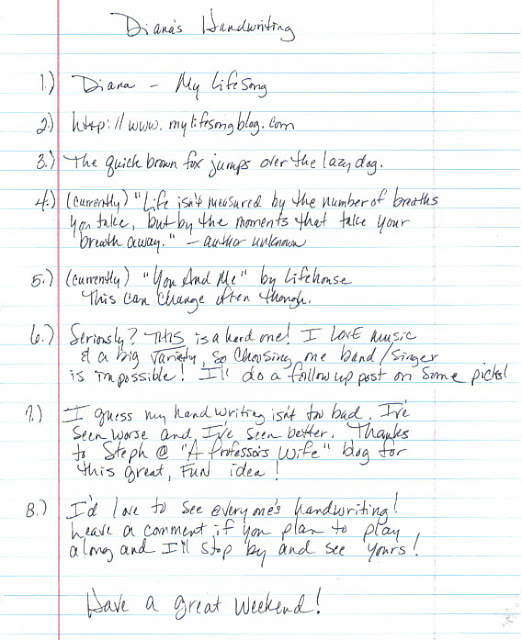 Diana's Handwriting
1.) Diana - My Life Song
2.) http://www.mylifesongblog.com
3.) The quick brown fox jumps over the lazy dog.
4.) (currently) "Life isn't measured by the number of breaths
you take, but by the moments that take your
breath away." - author unknown
5.) (currently) "You And Me" by Lifehouse
This can change often though.
6.) Seriously? THIS is a hard one! I LOVE music
& a big variety, so choosing one band/singer
is impossible! I'll do a follow up post on some picks!
7.) I guess my handwriting isn't too bad. I've
seen worse and I've seen better. Thanks
to Steph @ "A Professor's Wife" blog for
this great, FUN idea!
8.) I'd love to see everyone's handwriting!
Leave a comment if you plan to play
along and I'll stop by and see yours!
Have a great weekend!